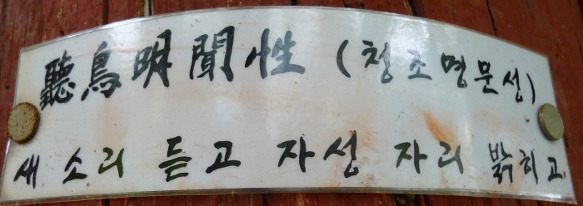 聽鳥明聞性 (청조명문성)
새 소리 듣고 자성 자리 밝히고